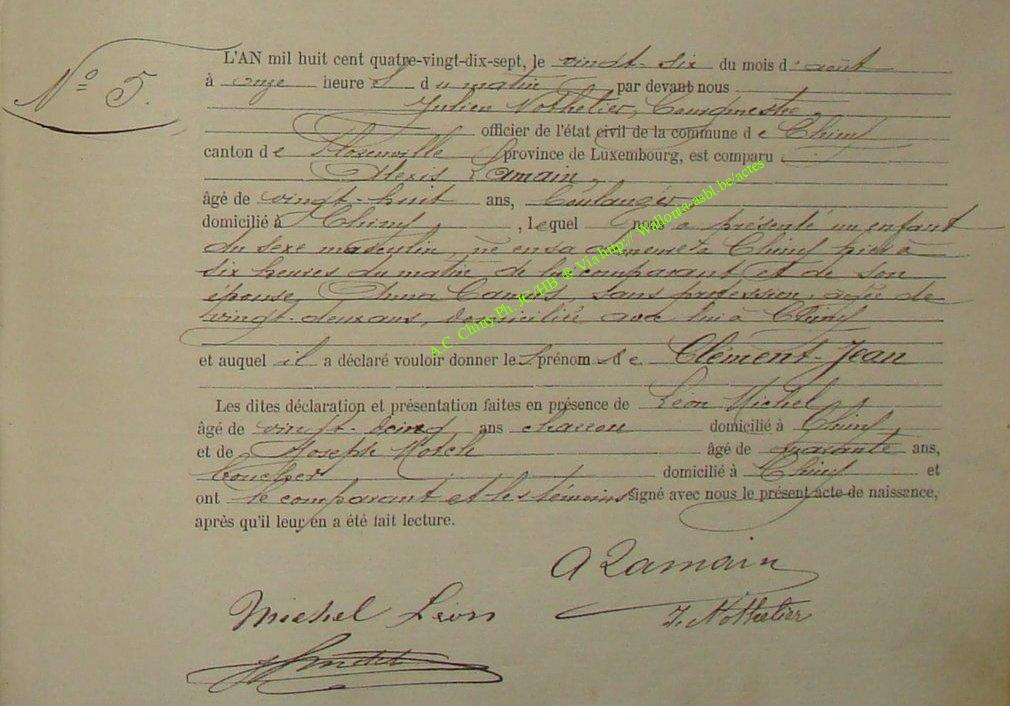 N° 5.
L'AN mil huit cent quatre-vingt-dix-sept, le vingt-six du mois d'août
à onze heures du matin par devant nous
Julien Nothelier, Bourgmestre,
officier de l'état civil de la commune de Chiny
canton de Florenville province de Luxembourg, est comparu
Alexis Lamain,
âgé de vingt-huit ans, boulanger
domicilié à Chiny, lequel nous a présenté un enfant
du sexe masculin, né en sa demeure à Chiny hier à
six heures du matin, de lui comparant et de son
épouse, Anna, sans profession, agée de
vingt-deux ans, domiciliée avec lui à Chiny
et auquel il a déclaré vouloir donner les prénoms de Clément-Jean
Les dites déclaration et présentation faites en présence de Léon Michel
âgé de vingt-cinq ans charron domicilié à Chiny,
et de Joseph âgé de quarante ans,
boucher domicilié à Chiny et
ont le comparant et les témoins signé avec nous le présent acte de naissance,
après qu'il leur en a été fait lecture.
A Lamain
Michel Léon
J. Nothelier
A.C. Chiny Ph. JC/HB ® Via http:// Wallonia-asbl.be/actes